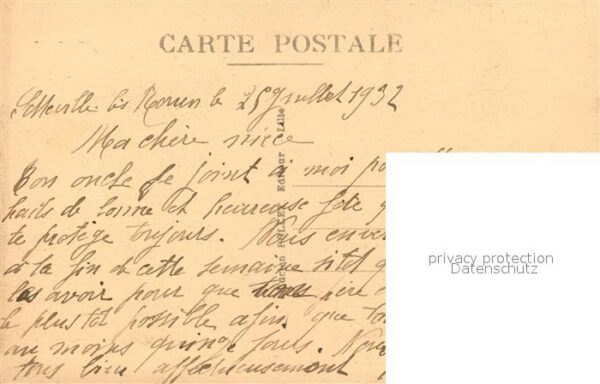 CARTE POSTALE
Sotteville les Rouen le 25 Juillet 1932
Ma chère nièce
Ton oncle se joint à moi po
haits de bonne et heureuse fête q
te protège toujours. Nous enver
à la fin de cette semaine sitôt q
les avoir pour que père
le plus tôt possible afin que to
au moins quinze jours.
tous bien affectueusement
Editeur Lille
privacy protection
Datenschutz